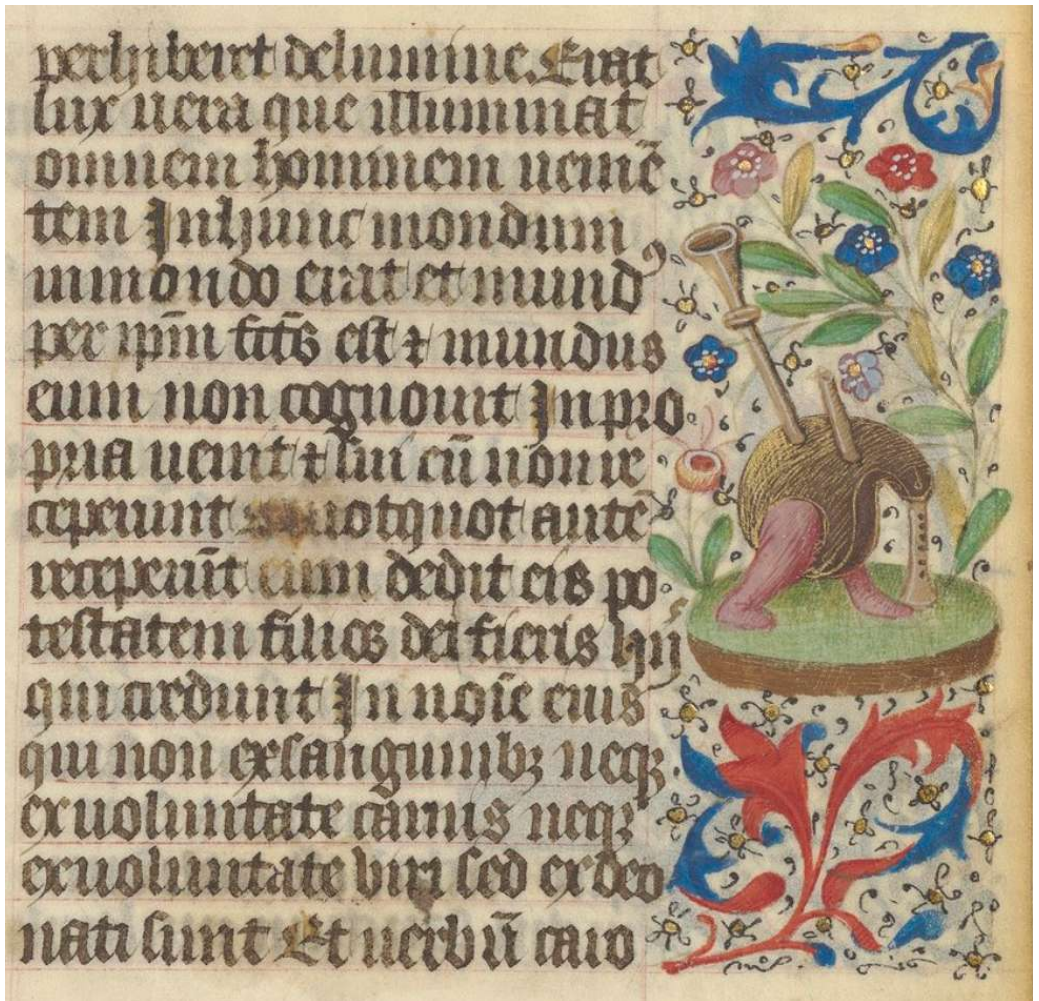 perhiberet delumine. Erat
lux uera que illuminat
omnem hominem ueniē
tem Inhunc mondum
inmondo erat et mundꝰ
per ip̄m fctūs est ⁊ mundus
eum non cognouit In pro
pria uenit ⁊ sui eū non re
ceperunt quotquot autē
receperūt eum dedit eis po
testatem filios dei fieris hij
qui credunt In noīe eius
qui non exsanguinibꝫ neqꝫ
exuoluntate carnis neqꝫ
exuoluntate viri sed exdeo
nati sunt Et uerbū caro